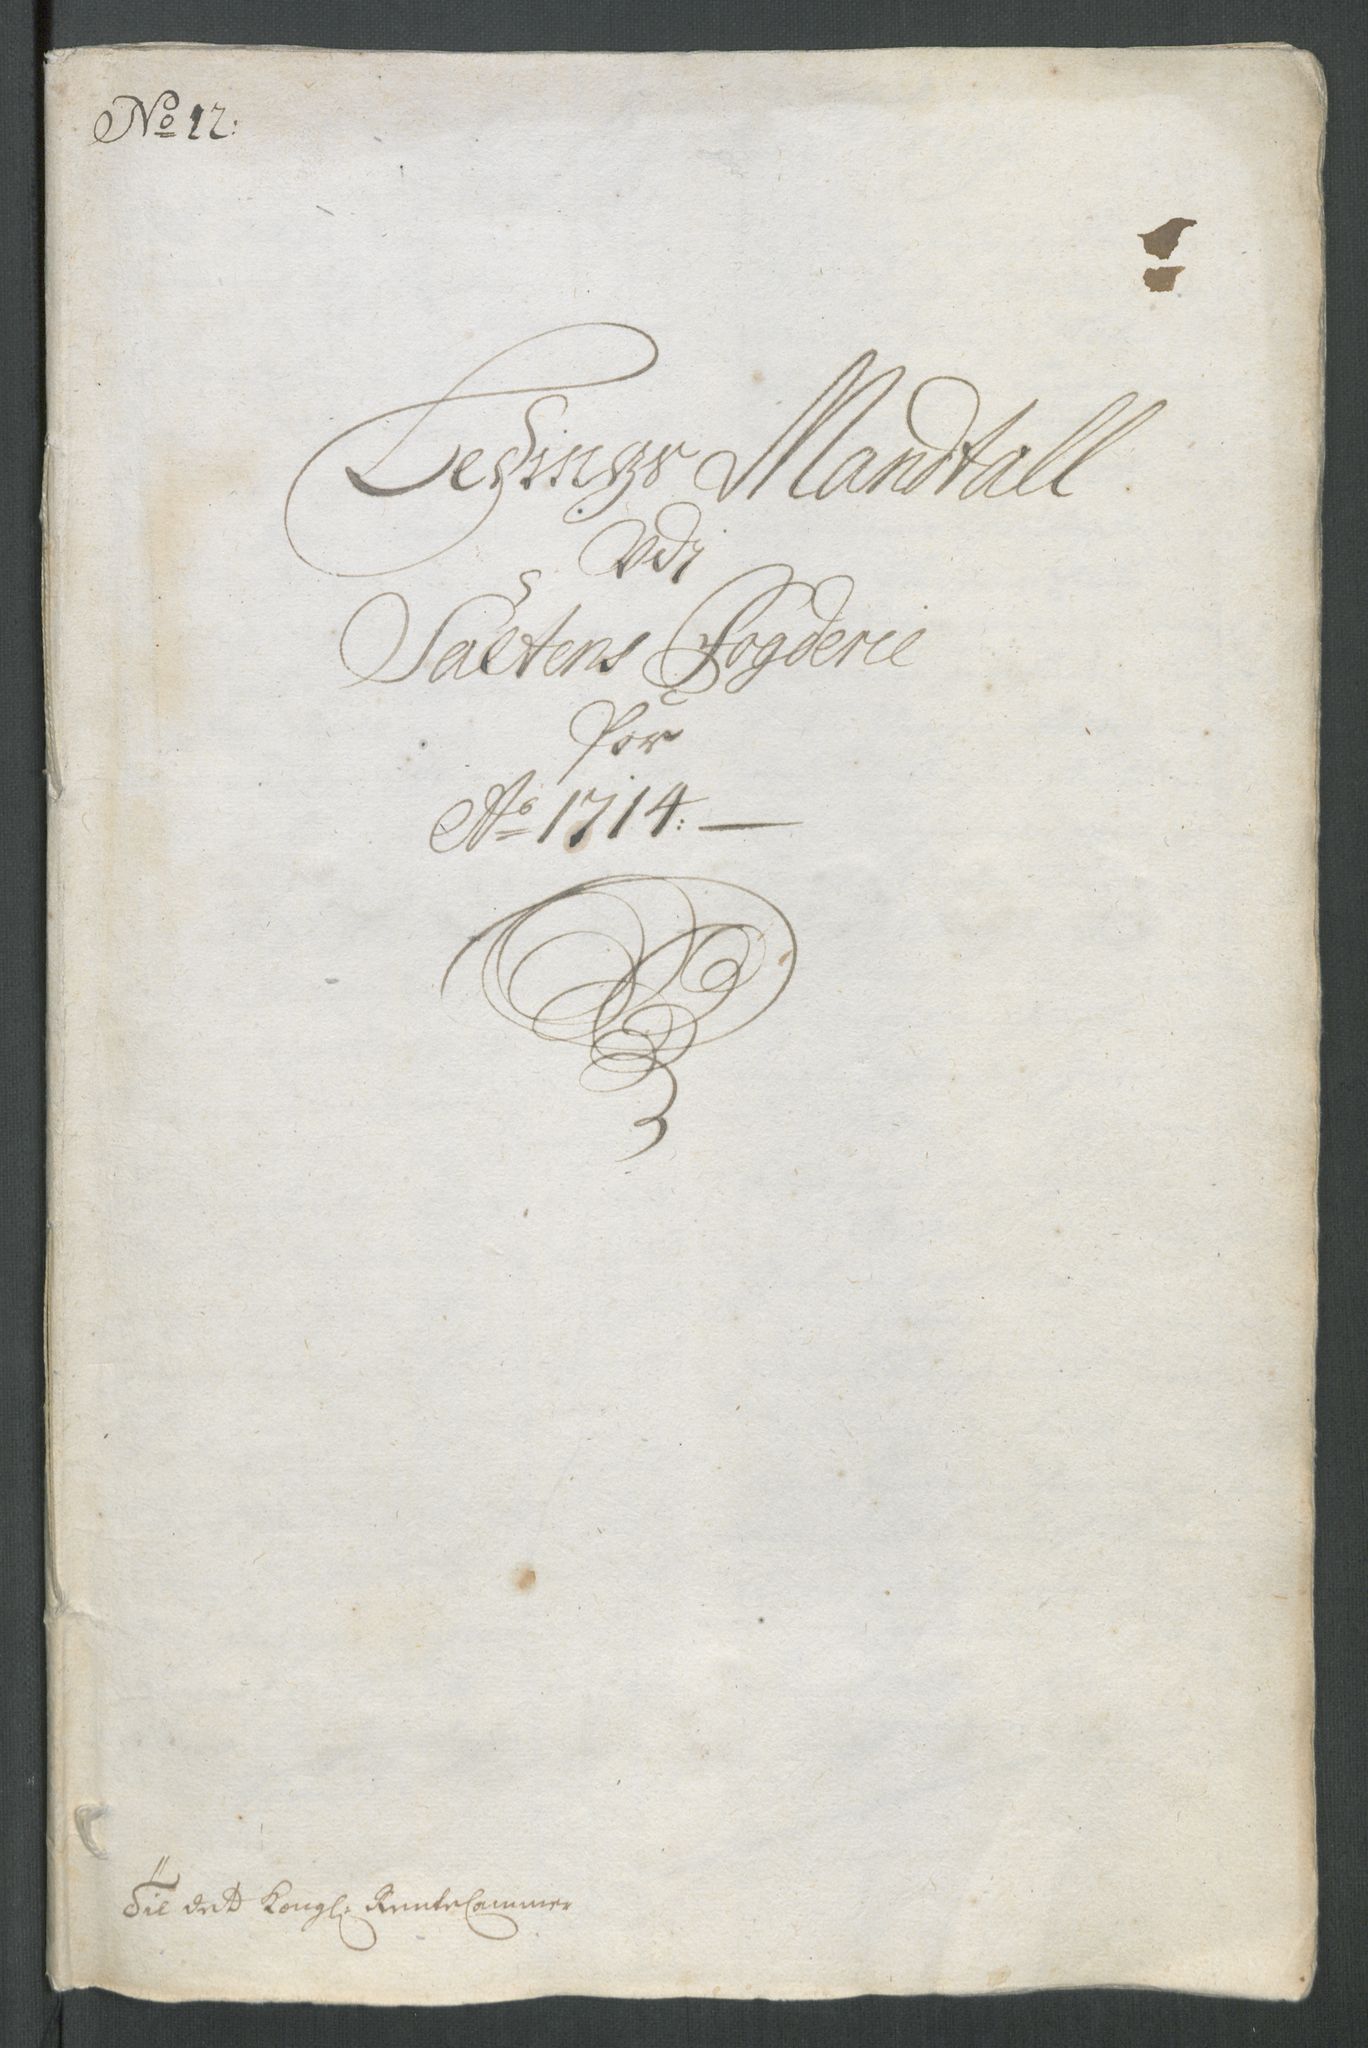 No 12:
Leħings Mandtall
Vdi
Saltens Fogderie
for
Ao 1714:
Til det Kongl: RenteCammer